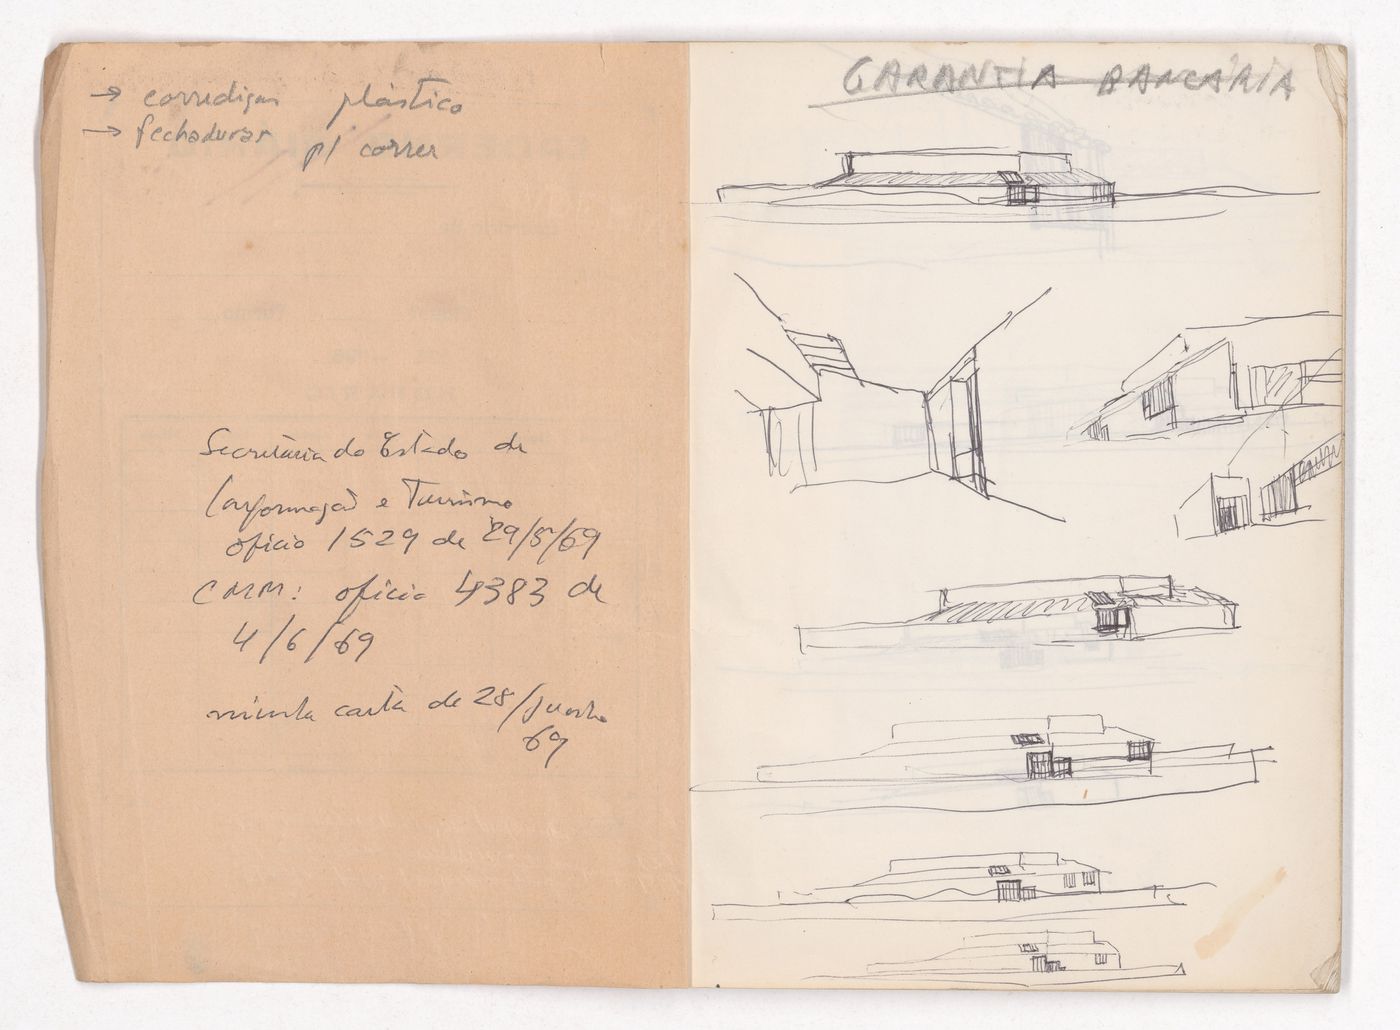 → corrediças plástico
→ fechaduras p/ correr
Secretaria do Estado de
Informação e Turismo
oficio 1529 de 29/5/69
CMM: oficio 4383 de
4/6/69
minha carta de 28/Junho
69
GARANTIA BANCÁRIA